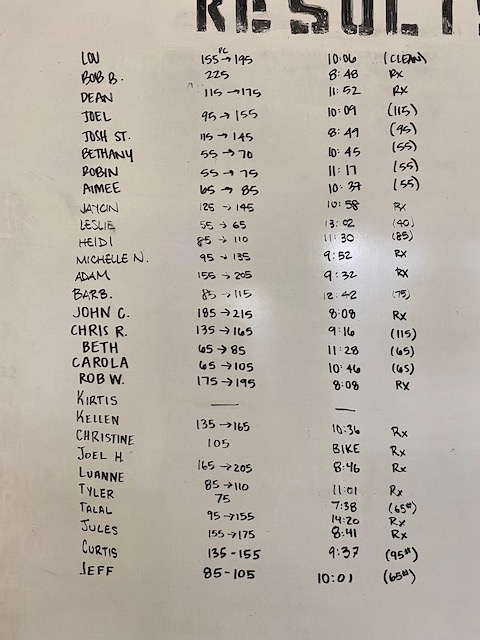 RESULT
LOU 155 →PC 195 10:06 (CLEAN)
BOB B. 225 8:48 RX
DEAN 115 →175 11:52 RX
JOEL 95 → 155 10:09 (115)
JOSH ST. 115 → 145 8:49 (95)
BETHANY 55 → 70 10:45 (55)
ROBIN 55 → 75 11:17 (55)
AIMEE 65 → 85 10:37 (55)
JAYCIN 125 → 145 10:58 Rx
LESLIE 55 → 65 13:02 (40)
HEIDI 85 → 110 11:30 (85)
MICHELLE N. 95 → 135 9:52 Rx
ADAM 155 → 205 9:32 RX
BARB. 85 → 115 12:42 (75)
JOHN C. 185 → 215 8:08 Rx
CHRIS R. 135 → 165 9:16 (115)
BETH 65 → 85 11:28 (65)
CAROLA 65 → 105 10:46 (65)
ROB W. 175 → 195 8:08 Rx
KIRTIS — —
KELLEN 135 → 165 10:36 Rx
CHRISTINE 105 BIKE Rx
JOEL H. 165 → 205 8:46 Rx
LUANNE 85 → 110 11:01 Rx
TYLER 75 7:38 (65#)
TALAL 95 → 155 14:20 Rx
JULES 155 → 175 8:41 Rx
CURTIS 135 - 155 9:37 (95#)
JEFF 85-105 10:01 (65#)